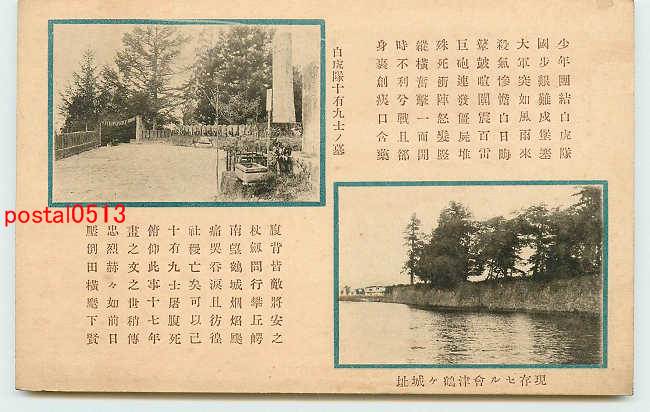 少年團結白虎隊
國步艱難戍堡塞
大軍突如風雨來
殺氣慘憺白日晦
鼙皷喧闐震百雷
巨砲連發僵屍堆
殊死衝陣怒髮竪
縱橫奮擊一面開
時不利兮戰且郤
身裹創痍口含藥
白虎隊十有九士ノ墓
腹背皆敵將安之
杖劔間行攀丘嶅
南望鶴城烟焰颺
痛哭呑淚且彷徨
社稷亡矣可以已
十有九士屠腹死
俯仰此事十七年
畫之文之世稍傳
忠烈赫々如前日
壓倒田橫麾下賢
現存セル會津鶴ケ城址
postal0513